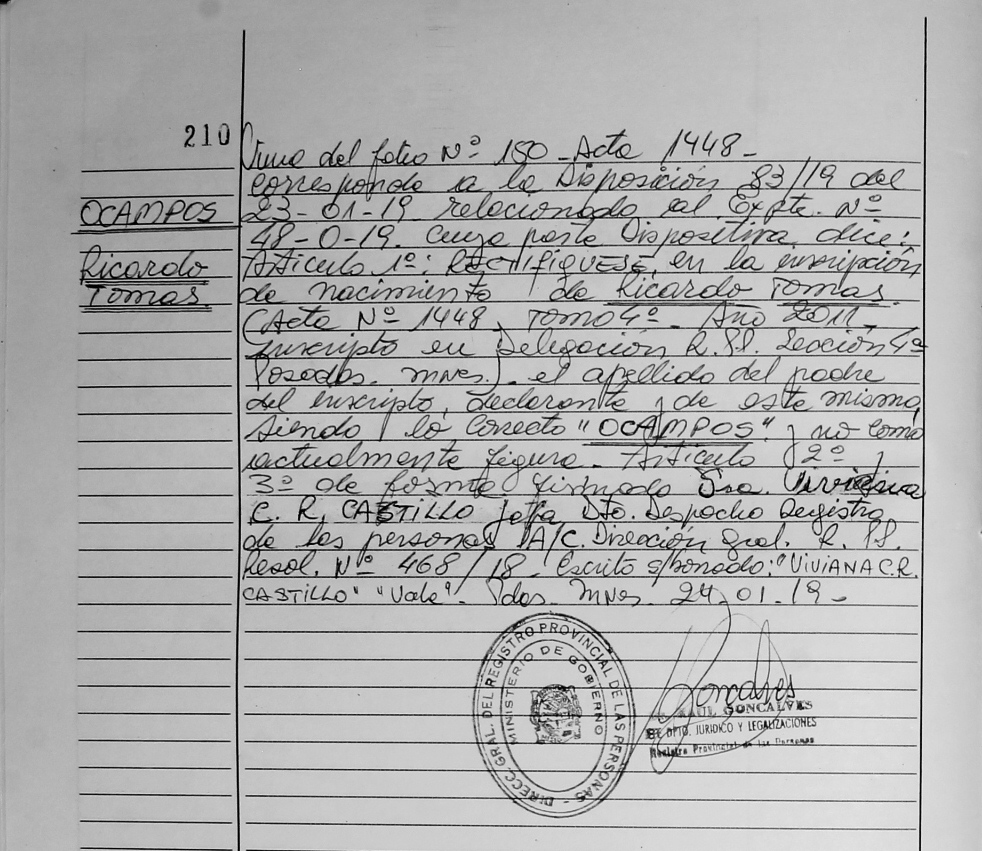 210
OCAMPOS
Ricardo
Tomas
Viene del folio Nº 150 - Acta 1448 -
corresponde a la Disposición 83/19 del
23-01-19 relacionado al Expte. Nº
48-O-19. Cuya parte Dispositiva, dice:
Articulo 1º: RECTIFIQUESE, en la inscripción
de nacimiento de Ricardo Tomas
(Acta Nº 1448, Tomo 4º - Año 2011 -
inscripto en Delegación R.PP. Sección 4ª
Posadas. Mnes.) el apellido del padre
del inscripto, declarante y de este mismo,
siendo lo correcto "OCAMPOS" y no como
actualmente figura - Articulo 2º y
3º de forma firmado Sra. Viviana
C. R. CASTILLO Jefa Dto. Despacho Registro
de las personas A/C. Dirección Gral. R. PP.
Resol. Nº 468/18 - Escrito s/borrado: "VIVIANA C.R.
CASTILLO" "Vale". Pdas. Mnes. 24-01-19 -
DIRECC. GRAL. DEL REGISTRO PROVINCIAL DE LAS PERSONAS -
MINISTERIO DE GOBIERNO
Goncalves
RAUL GONCALVES
DPTO. JURIDICO Y LEGALIZACIONES
Registro Provincial de las Personas